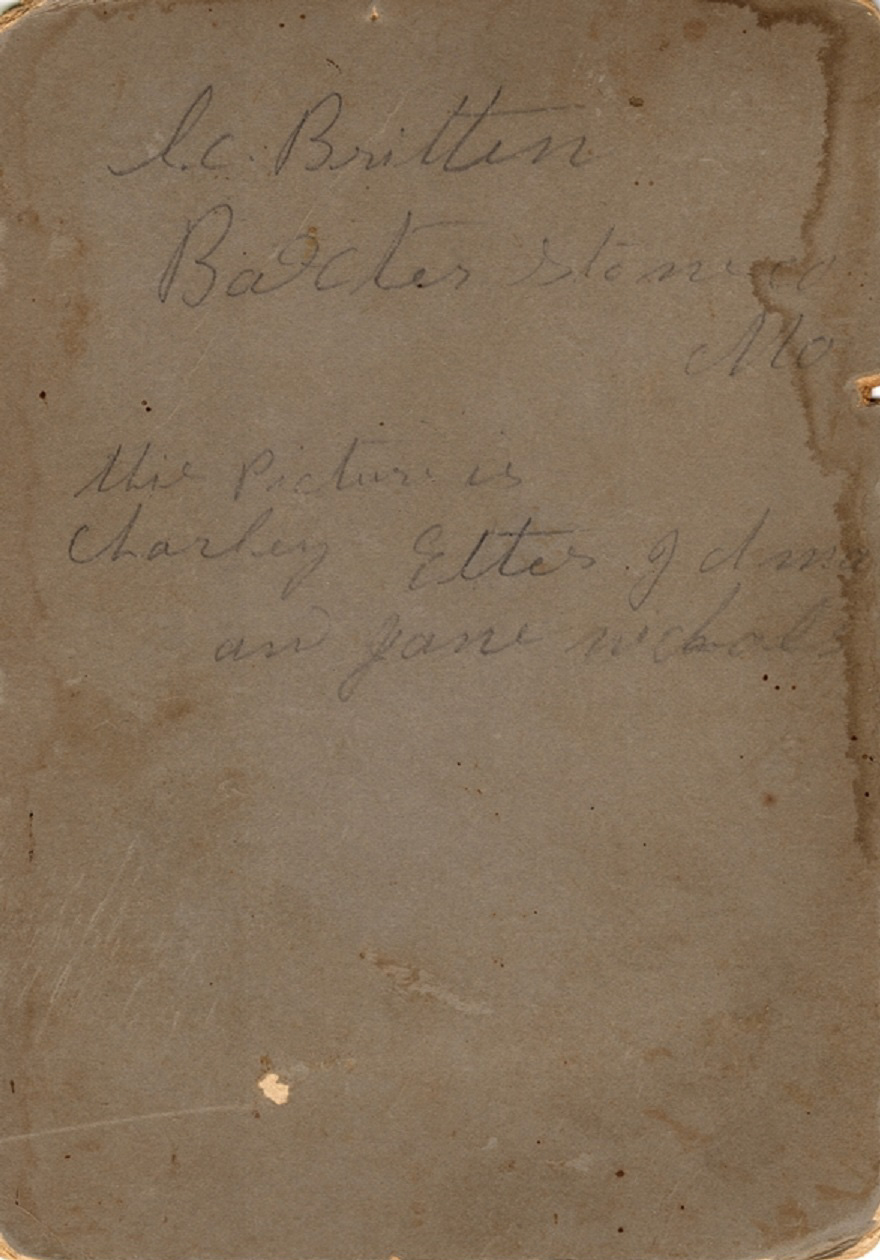 l.c. Britten
Baxter Stone co
Mo
this Picture is
Charley Eltes
and Jane nichols